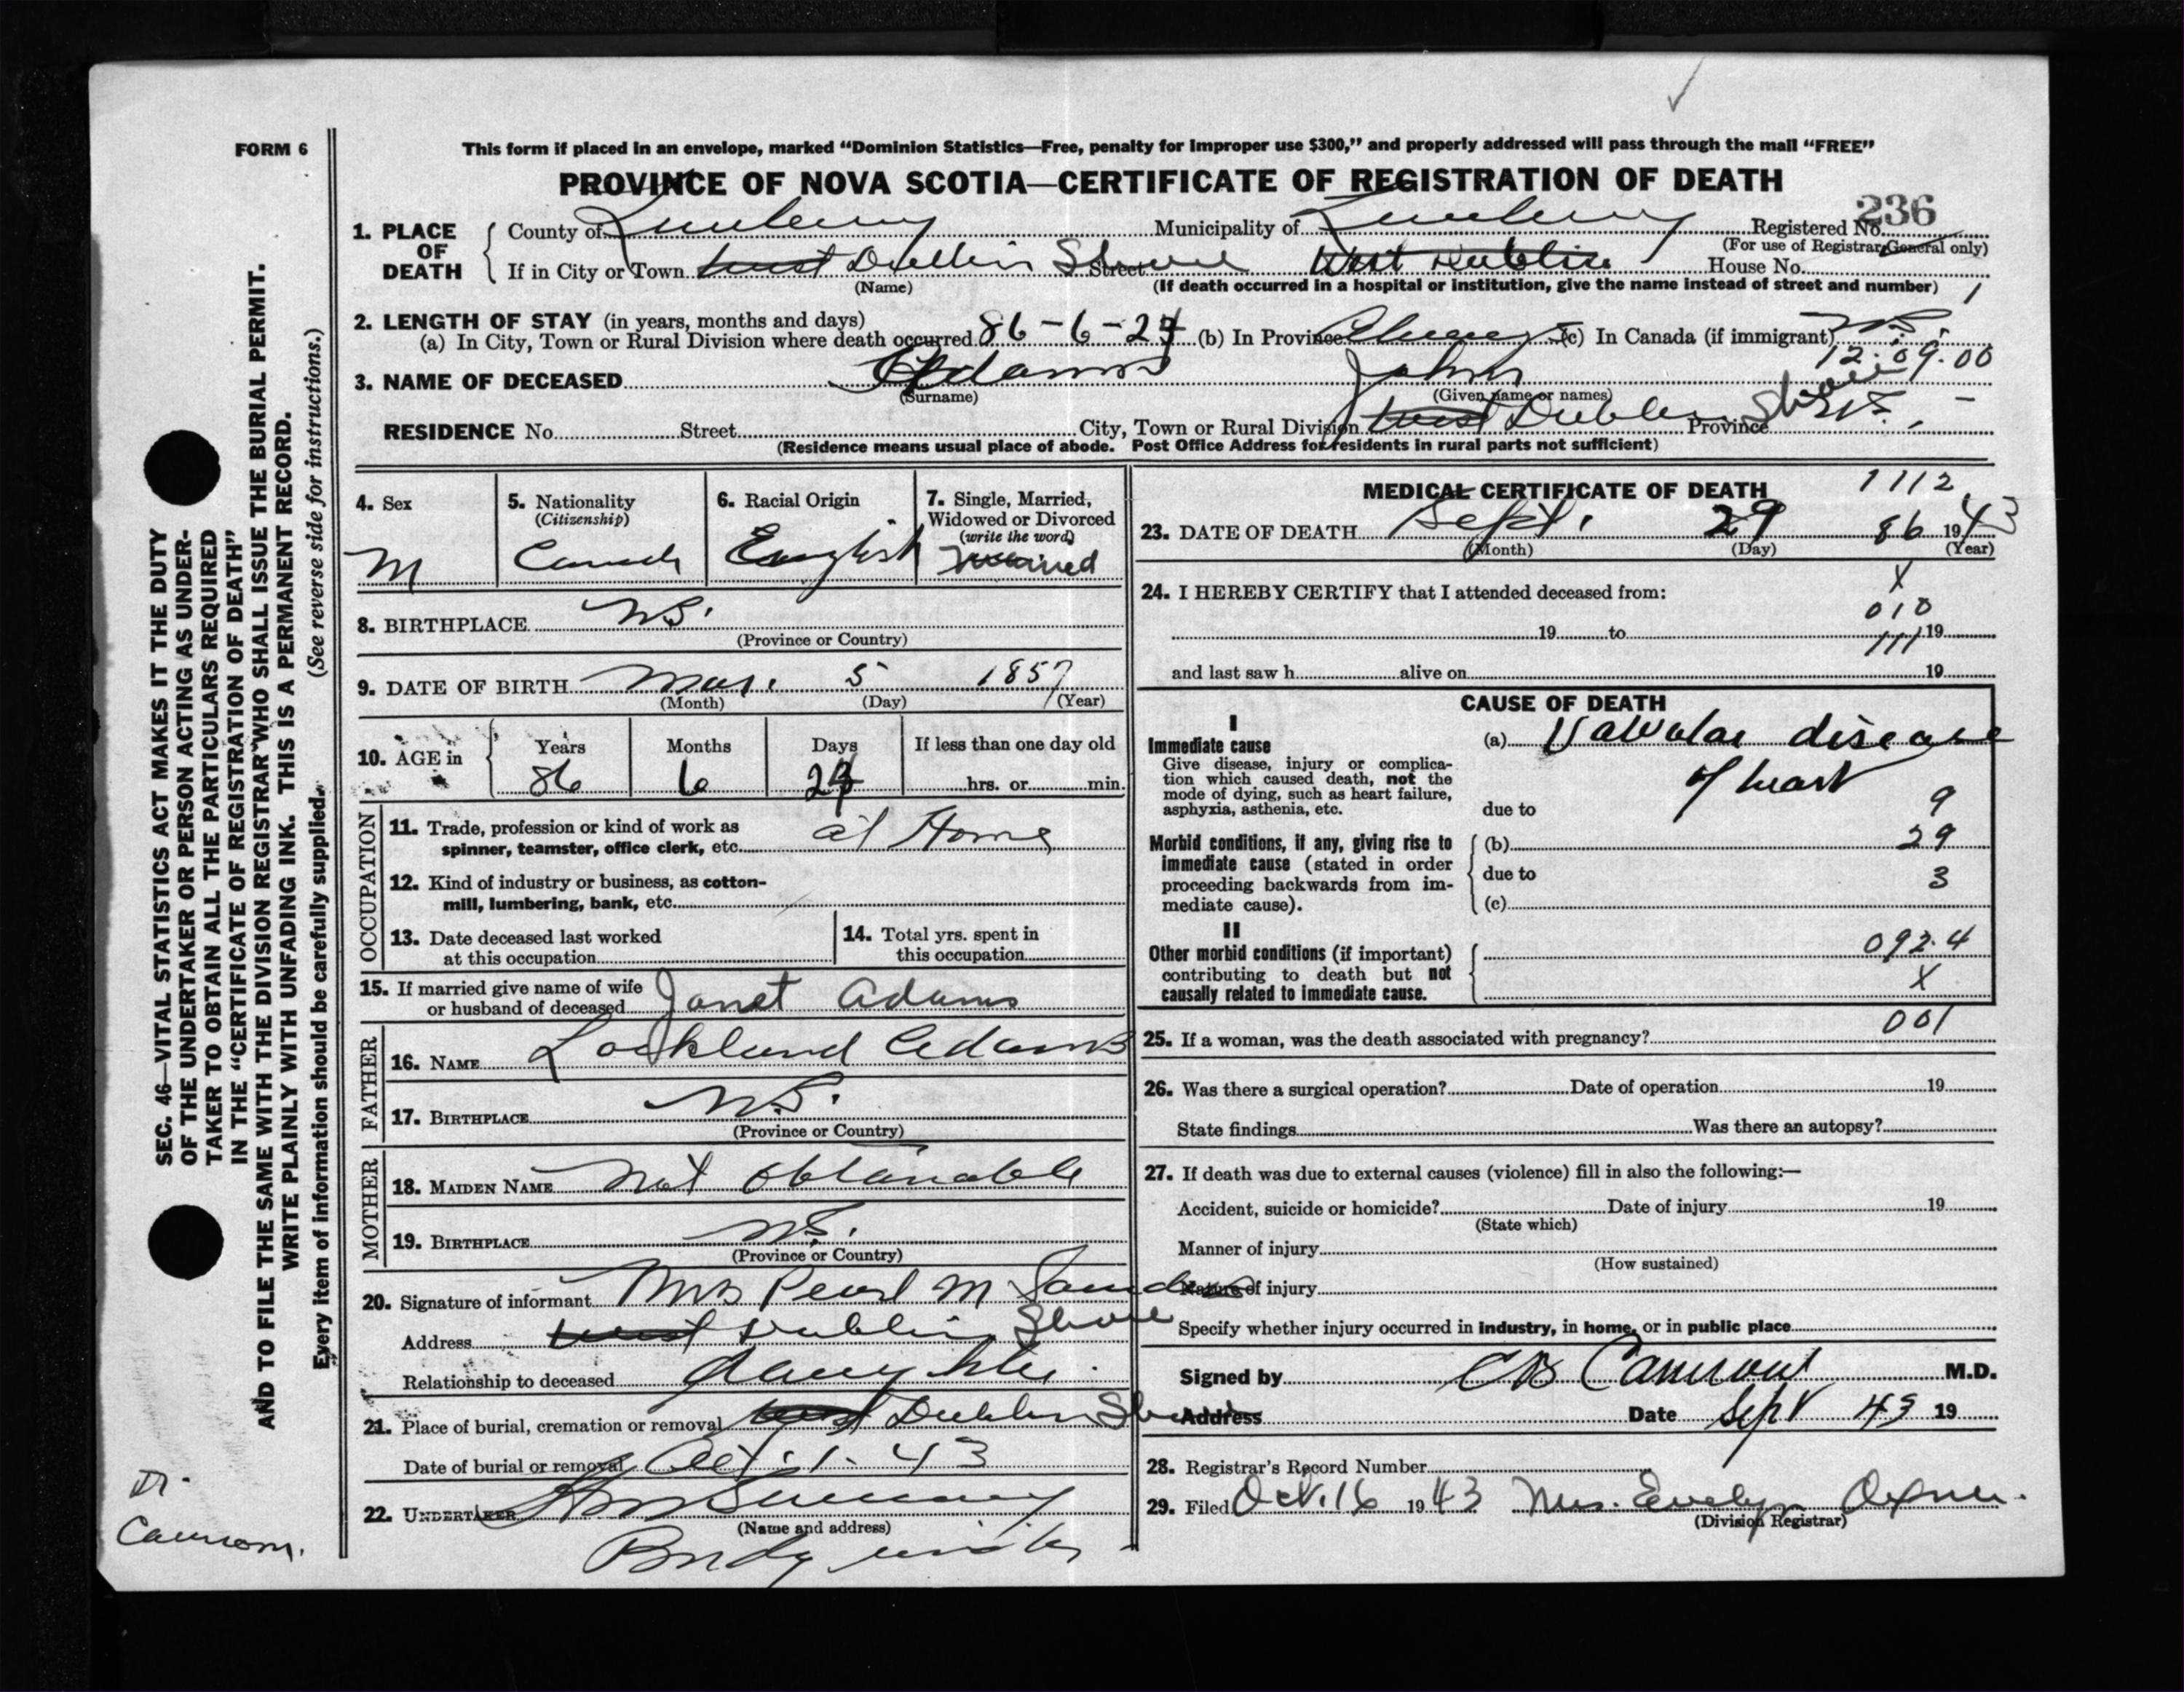 FORM 6
This form if placed in an envelope, marked “Dominion Statistics—Free, penalty for improper use $300,” and properly addressed will pass through the mail “FREE”
PROVINCE OF NOVA SCOTIA—CERTIFICATE OF REGISTRATION OF DEATH
236
1. PLACE OF DEATH
County of Lunenburg Municipality of Lunenburg Registered No.
(For use of Registrar General only)
If in City or Town West Dublin Shore Street West Dublin House No.
(Name) (If death occurred in a hospital or institution, give the name instead of street and number) 1
2. LENGTH OF STAY (in years, months and days)
(a) In City, Town or Rural Division where death occurred 86-6-24 (b) In Province Always (c) In Canada (if immigrant)
12.09.00
3. NAME OF DECEASED Adams John
(Surname) (Given name or names)
RESIDENCE No. Street City, Town or Rural Division West Dublin Shore Province N.S.
(Residence means usual place of abode. Post Office Address for residents in rural parts not sufficient)
4. Sex
M
5. Nationality
(Citizenship)
Canada
6. Racial Origin
English
7. Single, Married, Widowed or Divorced
(write the word)
Married
8. BIRTHPLACE N.S.
(Province or Country)
9. DATE OF BIRTH Mar. 5 1857
(Month) (Day) (Year)
10. AGE in
Years Months Days If less than one day old
86 6 24 hrs. or min.
OCCUPATION
11. Trade, profession or kind of work as
spinner, teamster, office clerk, etc. at Home
12. Kind of industry or business, as cotton-
mill, lumbering, bank, etc.
13. Date deceased last worked
at this occupation
14. Total yrs. spent in
this occupation
15. If married give name of wife
or husband of deceased Janet Adams
FATHER
16. NAME Lockland Adams
17. BIRTHPLACE N.S.
(Province or Country)
MOTHER
18. MAIDEN NAME Not obtanable
19. BIRTHPLACE N.S.
(Province or Country)
20. Signature of informant Mrs Pearl M
Address West Dublin Shore
Relationship to deceased daughter
21. Place of burial, cremation or removal West Dublin Shore
Date of burial or removal Oct. 1. 43
22. UNDERTAKER
(Name and address)
Bridgewater
MEDICAL CERTIFICATE OF DEATH 1112
23. DATE OF DEATH Sept. 29 86 1943
(Month) (Day) (Year)
24. I HEREBY CERTIFY that I attended deceased from: X
010
19 to 19
111
and last saw h alive on 19
CAUSE OF DEATH
I
Immediate cause
Give disease, injury or complica-
tion which caused death, not the
mode of dying, such as heart failure,
asphyxia, asthenia, etc.
(a) Valvular disease
of heart
due to 9
Morbid conditions, if any, giving rise to
immediate cause (stated in order
proceeding backwards from im-
mediate cause).
(b) 29
due to 3
(c)
II
Other morbid conditions (if important)
contributing to death but not
causally related to immediate cause.
092.4
X
001
25. If a woman, was the death associated with pregnancy?
26. Was there a surgical operation? Date of operation 19
State findings Was there an autopsy?
27. If death was due to external causes (violence) fill in also the following:—
Accident, suicide or homicide? Date of injury 19
(State which)
Manner of injury
(How sustained)
Nature of injury
Specify whether injury occurred in industry, in home, or in public place
Signed by CB Cameron M.D.
Address Date Sept 43 19
28. Registrar's Record Number
29. Filed Oct. 16 1943 Mrs. Evelyn
(Division Registrar)
SEC. 46—VITAL STATISTICS ACT MAKES IT THE DUTY
OF THE UNDERTAKER OR PERSON ACTING AS UNDER-
TAKER TO OBTAIN ALL THE PARTICULARS REQUIRED
IN THE “CERTIFICATE OF REGISTRATION OF DEATH”
AND TO FILE THE SAME WITH THE DIVISION REGISTRAR WHO SHALL ISSUE THE BURIAL PERMIT.
WRITE PLAINLY WITH UNFADING INK. THIS IS A PERMANENT RECORD.
Every item of information should be carefully supplied. (See reverse side for instructions.)
Dr.
Cameron.